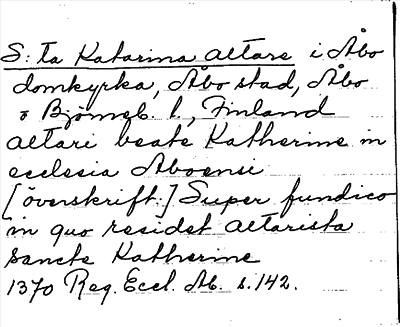 S:ta Katarina altare i Åbo
domkyrka, Åbo stad, Åbo
o Björneb. l., Finland
altari beate Katherine in
ecclesia Aboensi
[överskrift:] Super fundico
in quo residet altarista
sancte Katherine
1370 Reg. Eccl. Ab. s. 142.